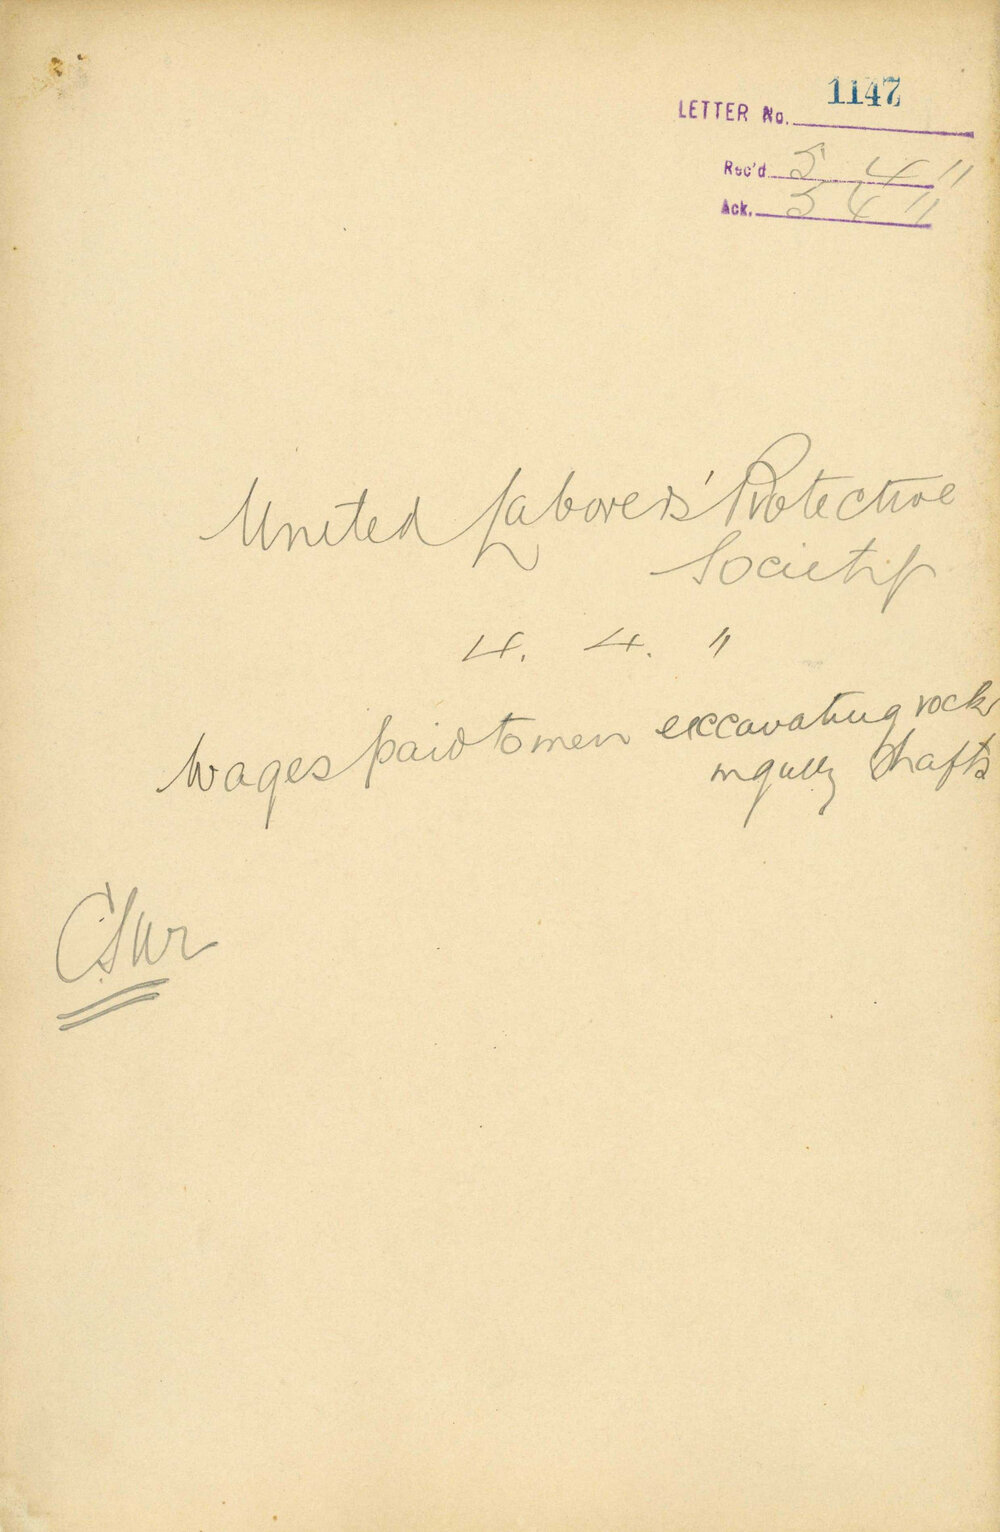 LETTER No. 1147
Rec'd 5 4 11
Ack. 5 4 11
United Laborers' Protective
Society
4. 4. 11
Wages paid to men excavating rock
in gully shafts